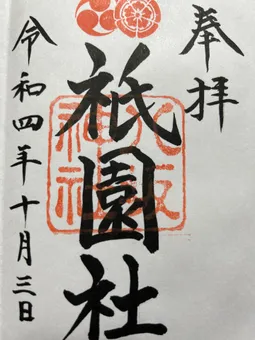 奉拝
八坂神社
祇園社
令和四年十月三日